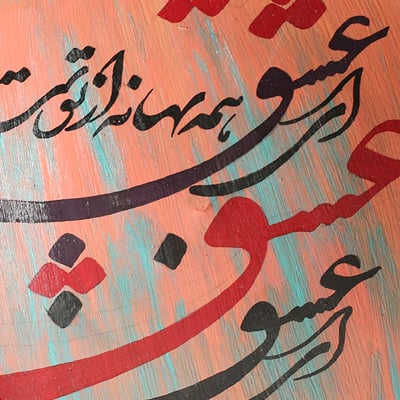 ای عشق همه بهانه از توست
عشق
ای عشق